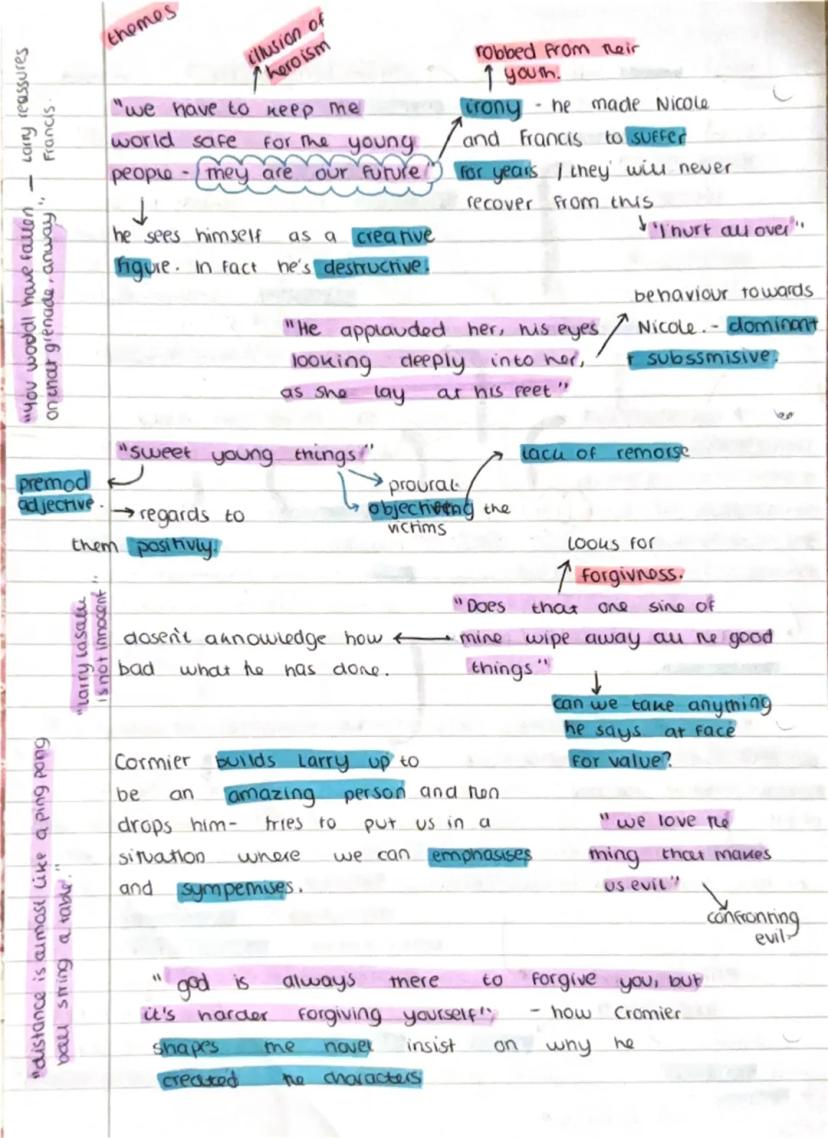 themes
illusion of
heroism
robbed from their
youth.
"we have to keep the
world safe for the young
people - they are our future"
irony - he made Nicole
and Francis to suffer
for years / they will never
recover from this
"I hurt all over"
he sees himself as a creative
figure. In fact he's destructive.
"You would have fallen
on that grenade, anway" — Larry reassures
Francis.
"He applauded her, his eyes
looking deeply into her,
as she lay at his feet"
behaviour towards
Nicole. - dominant
+ subssmisive.
"sweet young things"
premod
adjective.
regards to
them positivly.
prourat
objectifying the
victims
lack of remorse
looks for
forgivness.
"Does that one sine of
mine wipe away all the good
things"
dosen't acknowledge how
bad what he has done.
can we take anything
he says at face
for value?
"Larry Lasalle
is not innocent"
Cormier builds Larry up to
be an amazing person and then
drops him- tries to put us in a
situation where we can emphasises
and sympemises.
"we love the
thing that makes
us evil"
confronting
evil
"distance is almost like a ping pang
ball string a table."
"god is always there to forgive you, but
it's harder forgiving yourself" - how Cromier
shapes the novel insist on why he
created the characters